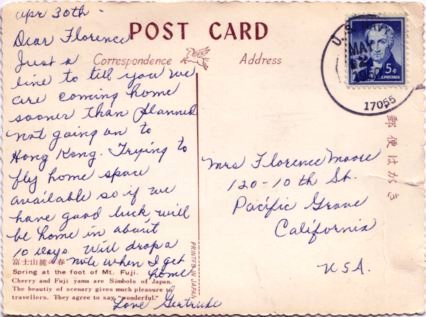 Apr 30th -
Dear Florence
Just a
line to tell you we
are coming home
sooner than planned
not going on to
Hong Kong. Trying to
fly home space
available so if we
have good luck will
be home in about
10 days. Will drop a
note when I get
home
Love Gertrude
富士山麓の春
Spring at the foot of Mt. Fuji.
Cherry and Fuji yama are Simbols of Japan.
The beautiy of scenary gives much pleasure to
travellers. They agree to say "wonderful."
POST CARD
Correspondence
Address
PRINTED IN JAPAN
U.S.
MAY
17055
5¢
郵便はがき
Mrs Florence Moore
120-10th St.
Pacific Grove
California
USA.